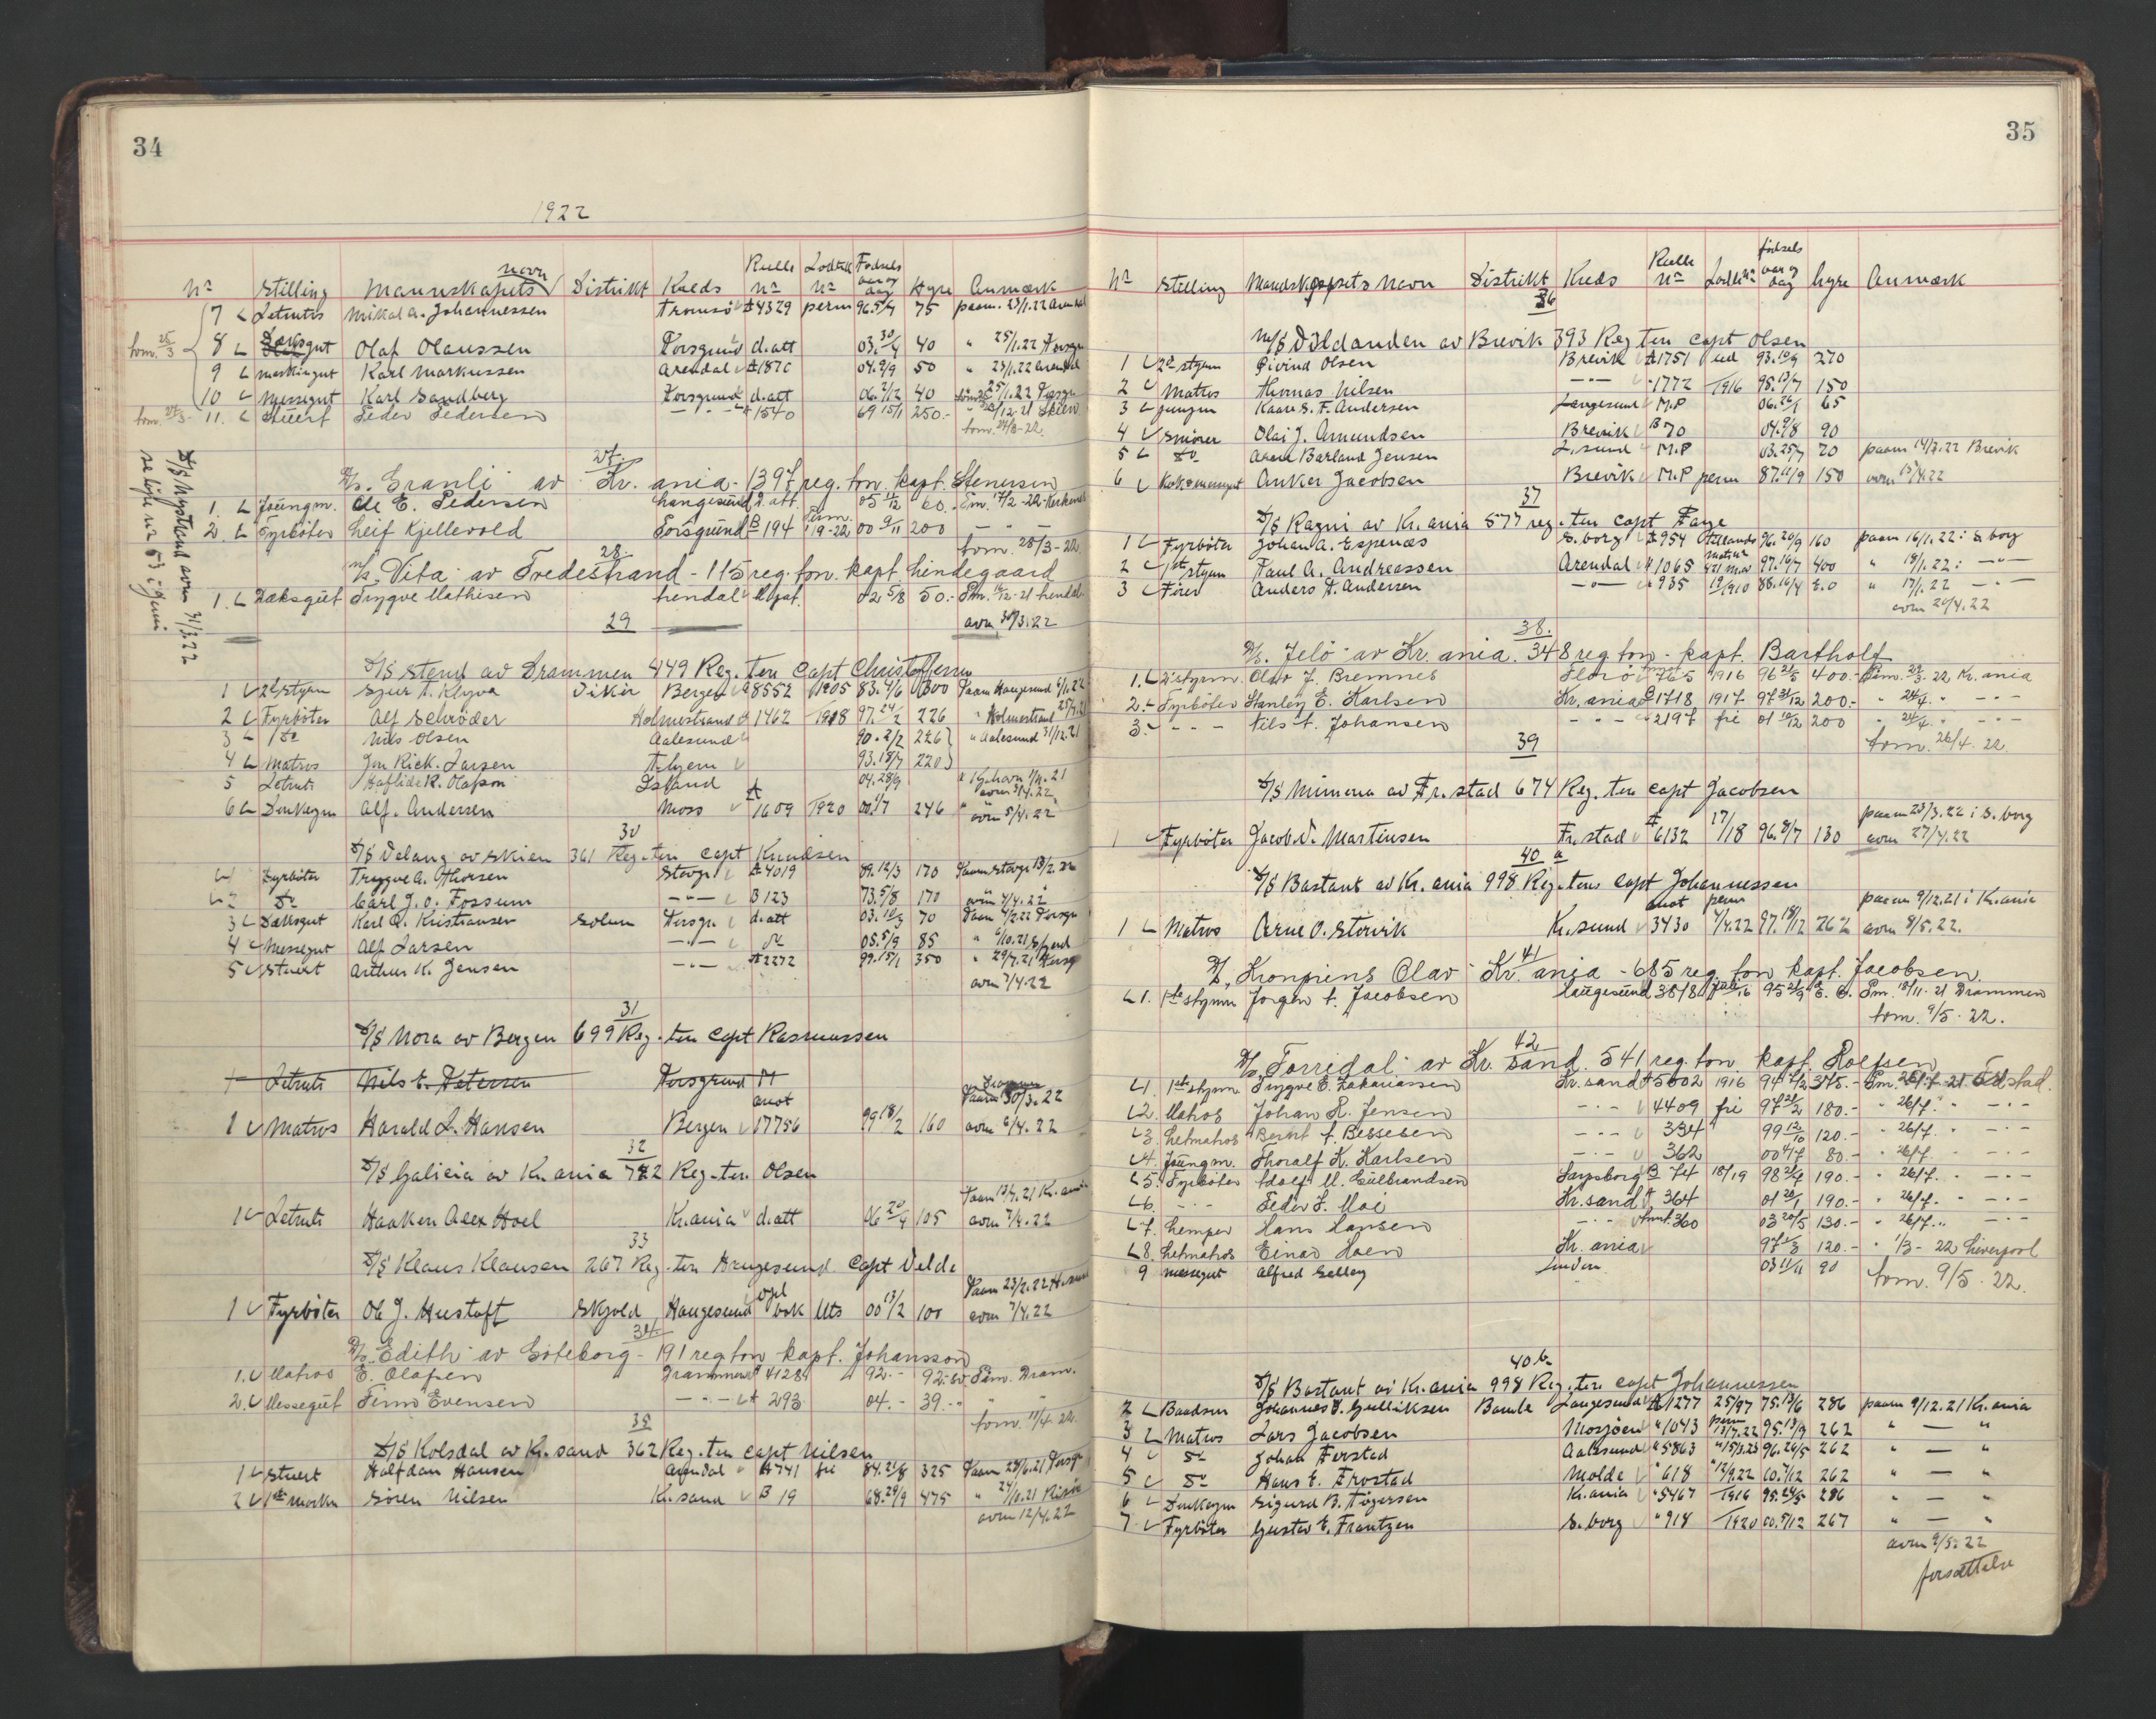 34
1922
No Stilling Mannskapets navn Distrikt Kreds Rulle No Lodtr No Fødsels aar og dag Hyre Anmærk
7 Letmtrs Mikal A. Johannessen Tromsø A 4329 perm 96.5/7 75 paam. 23/1.22 Arendal
tom. 25/3
8 Dæksgut Olaf Olaussen Porsgrund d.att 03.30/4 40 " 25/1.22 Porsgr
9 Maskingut Karl Markussen Arendal A 1870 04.9/9 50 " 23/1.22 Arendal
10 Messegut Karl Sandberg Porsgrund d.att 06.2/12 40 25/1.22 Porsgr
11. Stuert Peder Pedersen - " - 1540 69 15/1 250.- /12-21 Skien
tom. 24/3-22.
D/S Nystrand avm 31/3.22
se löpe nr 53 i Juni
27.
D/S. Granli av Kr. ania - 1397 reg. ton. kapt. Stenersen
1. Jüngm. Ole E. Pedersen Langesund d. att. 05 11/12 60.- Pm. 17/2-22 Kirkenes
2. Fyrböter Leif Kjellevold Porsgrund B 194 Perm. 19-22 00 9/11 200 - " -
tom. 28/3-22.
28.
M/S. Vita av Tvedestrand - 115 reg. ton. kapt. Lindegaard
1. Dæksgüt Trygve Mathisen Arendal 02 5/8 50.- Pm. 12/12-21 Arendal
avm 30/3.22
29
D/S Stend av Drammen 449 Reg. ton Capt Christoffersen
1 2d styrm Sjur A. Klyva Vikør Bergen A 8552 1905 83.4/6 300 Paam Haugesund 4/1.22
2 Fyrböter Alf Schröder Holmestrand A 1462 1918 97.24/2 226 " Holmestrand 25/7.21
3 Do Nils Olsen Aalesund 90.2/2 226 " Aalesund 31/12.21
4 Matros Jon Rick. Larsen 93.18/7 220
5 Letmts Haflide R. Olafson Island 04.28/9 " Kjøhavn 1/11.21
avm 5/4.22
6 Donkeym Alf. Andersen Moss A 1609 1920 00.1/7 246 " avm 5/4.22
30
D/S Velang av Skien 361 Reg. ton Capt Knudsen
1 Fyrböter Trygve A. Thorsen Stavgr A 4019 09.12/3 170 Paam Stavgr 13/2.22
2 Do Carl J. O. Fossum - " - B 123 73.5/8 170 avm 7/4.22
3 Dæksgut Karl O. Kristiansen Solum Porsgr. d.att 03.10/3 70 Paam 4/2.22 Porsgr
4 Messegut Alf Larsen - " - Do 05.5/9 85 " 6/10.21
5 Stuert Arthur K. Jensen - " - A 2272 99.15/1 350 " 29/7.21 Porsgr
avm 7/4.22
31
D/S Nora av Bergen 699 Reg. ton Capt Rasmussen
Letmts Nils E. Petersen Porsgrund
1 Matros Harald L. Hansen Bergen anot 17756 99 18/2 160 Drammen Paam 30/3.22
avm 6/4.22
32
D/S Galicia av Kr.ania 782 Reg. ton. Olsen
1 Letmts Haaken Alex Hoel Kr.ania d.att 06 20/9 105 Paam 13/7.21 Kr.ania
avm 7/4.22
33
D/S Klaus Klausen 267 Reg. ton Haugesund Capt Velde
1 Fyrböter Ole J. Hustoft Skjold Haugesund opl bok Uts 00 13/2 100 Paam 23/2.22 H.sund
avm 7/4.22
34
D/S. Edith av Göteborg - 191 reg ton kapt. Johansson
1. Matros E. Olafsen Drammen 4128 92.- 92.50 Pm. Dram.
2. Messegüt Finn Evensen - " - A 293 04.- 39.- " "
tom. 11/4-22.
35
D/S Kolsdal av Kr.sand 362 Reg. ton Capt Nilsen
1 Stuert Halfdan Hansen Arendal A 741 fri 84.21/8 325 Paam 28/6.21 Porsgr
2 1ste Maskn Sören Nilsen Kr.sand B 19 68.29/9 475 " 24/10.21 Risör
avm 12/4.22
35
No Stilling Mandskapets Navn Distrikt Kreds Rulle No Lodtr No fødsels aar og dag hyre Anmærk
36
M/S Vildanden av Brevik 393 Reg ton capt Olsen
1 2d styrm Øivind Olsen Brevik A 1751 ud 93.10/9 270
2 Matros Thomas Nilsen - " - " 1772 1916 95.13/7 150
3 jungm Kaare S. F. Andersen Langesund M.P 06.26/1 65
4 Smörer Olai J. Amundsen Brevik B 70 04.9/8 90
5 Do Arne Barland Jensen L.sund M.P 03.25/7 70 paam 14/2.22 Brevik
6 Anker Jacobsen Brevik M.P perm 87.11/9 150 avm 15/4.22
37
D/S Ragni av Kr.ania 577 reg. ton Capt Faye
1 Fyrböter Johan A. Espenæs S.borg A 954 96.20/9 160 paam 16/1.22 i S.borg
2 1st styrm Paul A. Andreassen Arendal A 1065 97.16/7 400 " 18/1.22 : - " -
3 Fører Anders A. Andersen - " - " 935 19/1910 88.16/4 E.O " 17/1.22 - " -
avm 20/4.22
38.
D/S. Jelö av Kr. ania. 348 reg ton - kapt. Barthold
1. 2 styrm. Olav J. Bremnes Florø 765 1916 96 21/5 400.- Pm. 29/3-22 Kr. ania
2. Fyrböter Stanley E. Karlsen Kr. ania B 1718 1917 97 31/12 200.- " 24/4. " - " -
3. - " - Nils A. Johansen - " - 2197 fri 01 10/12 200 " 24/4 - " -
tom. 26/4. 22.
39
D/S Mimona av Fr.stad 674 Reg. ton Capt Jacobsen
paam 23/3.22 i S.borg
1 Fyrböter Jacob V. Martinsen Fr.stad A 6132 27/18 96.8/7 130 avm 27/4.22
40 a
D/S Bastant av Kr.ania 998 Reg. tons Capt Johannessen
paam 9/12.21 i Kr.ania
1 Matros Arne O. Storvik Kr.sund anot 3430 perm 4/4.22 97.18/12 262 avm 8/5.22.
41
D/S, Kronprins Olav Kr. ania - 685 reg. ton kapt. Jacobsen.
1. 1ste styrm Jörgen A. Jacobsen Haugesund 3818 95 21/9 E. O. Pm. 18/11-21 Drammen
tom. 9/5-22.
42
D/S, Torridal av Kr. sand. 541 reg. ton kapt. Roefsen
1. 1ste styrm Trygve E. Zakariassen Kr. sand A 5602 1916 94 17/2 375.- Pm. 26/7-21 Fr.stad.
2. Matros Johan R. Jensen - " - 4409 fri 97 21/2 180.- " 26/7. " - " -
3. Letmatros Bernt A. Bessesen - " - 334 99 12/10 120.- " 26/7. - " -
4. Jüngm. Thoralf K. Karlsen - " - 362 00 4/7 80.- " 26/7. - " -
5. Fyrböter Adolf M. Gulbrandsen Sarpsborg B 74 18/19 98 21/4 190.- " 26/7. - " -
6. - " - Peder F. Moi Kr. sand A 364 01 20/1 190.- " 26/7. - " -
7. Lemper Hans Hansen - " - 360 03 20/5 130.- " 26/7. " - " -
8. Letmatros Einar Hoen Kr. ania 97 1/3 120.- " 1/3-22 Liverpool
9 messegut Alfred Selley London 03 11/11 90 tom. 9/5. 22.
40 b
D/S Bastant av Kr.ania 998 Reg. ton capt Johannessen
2 Baadsm Johannes J. Gulliksen Bamle Langesund A 1277 25/97 75.19/6 286 paam 9/12.21 Kr.ania
3 Matros Lars Jacobsen Mosjøen " 1043 perm 13/7.22 95.13/9 262 " — "
4 Do Johan Frostad Aalesund " 5863 " 15/3.23 96.26/5 262 " — "
5 Do Hans E. Frostad Molde " 618 " 12/9.22 00.7/12 262 " — "
6 Donkeym Sigurd B. Tögersen Kr.ania " 5467 1916 95.24/5 286 " — "
7 Fyrböter Gustav E. Frantzen S.borg " 918 1920 00.5/12 267 " — "
avm 9/5.22
forsættelse